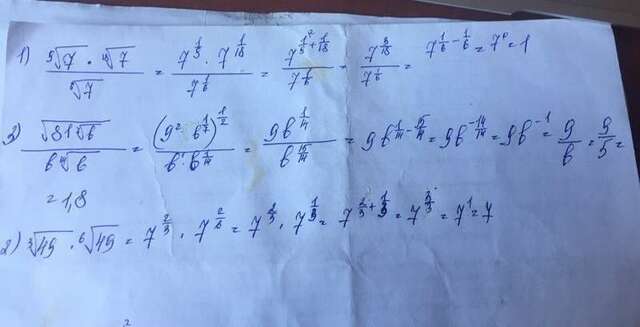 1) ⁹√7 · ¹⁸√7 / ⁶√7 = 7^(1/9) · 7^(1/18) / 7^(1/6) = 7^(1/9 + 1/18) / 7^(1/6) = 7^(3/18) / 7^(1/6) = 7^(1/6 - 1/6) = 7⁰ = 1
3) √(81 ⁷√b) / (b ¹⁴√b) = (9² · b^(1/7))^(1/2) / (b¹ · b^(1/14)) = 9b^(1/14) / b^(15/14) = 9b^(1/14 - 15/14) = 9b^(-14/14) = 9b^(-1) = 9/b = 9/5 =
= 1,8
2) ³√49 · ⁶√49 = 7^(2/3) · 7^(2/6) = 7^(2/3) · 7^(1/3) = 7^(2/3 + 1/3) = 7^(3/3) = 7¹ = 7